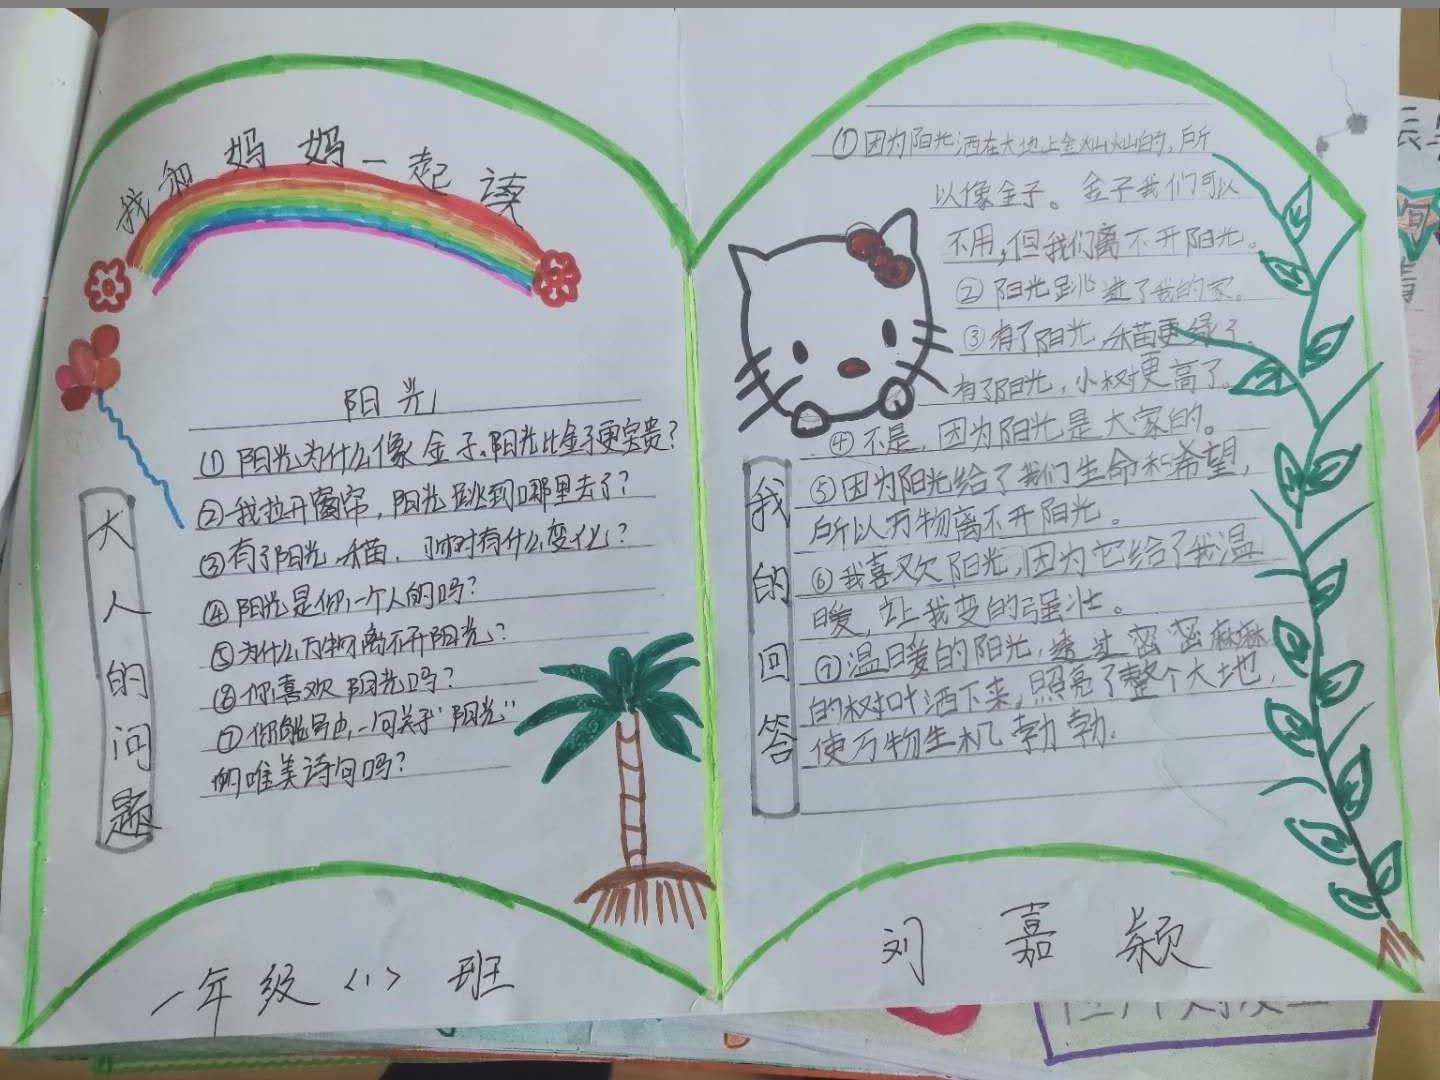 我和妈妈一起读
阳光
①阳光为什么像金子。阳光比金子更宝贵?
②我拉开窗帘,阳光跳到哪里去了?
③有了阳光,禾苗、小树有什么变化?
④阳光是你一个人的吗?
⑤为什么万物离不开阳光?
⑥你喜欢阳光吗?
⑦你能写出一句关于“阳光”
的唯美诗句吗?
大人的问题
一年级(1)班
①因为阳光洒在大地上金灿灿的,所
以像金子。金子我们可以
不用,但我们离不开阳光。
②阳光跳进了我的家。
③有了阳光,禾苗更绿了,
有了阳光,小树更高了。
④不是,因为阳光是大家的。
⑤因为阳光给了我们生命和希望,
所以万物离不开阳光。
⑥我喜欢阳光,因为它给了我温
暖,让我变的强壮。
⑦温暖的阳光,透过密密麻麻
的树叶洒下来,照亮了整个大地,
使万物生机勃勃.
我的回答
刘嘉颖